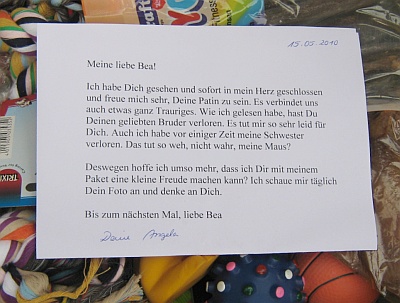 15.05.2010
Meine liebe Bea!
Ich habe Dich gesehen und sofort in mein Herz geschlossen
und freue mich sehr, Deine Patin zu sein. Es verbindet uns
auch etwas ganz Trauriges. Wie ich gelesen habe, hast Du
Deinen geliebten Bruder verloren. Es tut mir so sehr leid für
Dich. Auch ich habe vor einiger Zeit meine Schwester
verloren. Das tut so weh, nicht wahr, meine Maus?
Deswegen hoffe ich umso mehr, dass ich Dir mit meinem
Paket eine kleine Freude machen kann? Ich schaue mir täglich
Dein Foto an und denke an Dich.
Bis zum nächsten Mal, liebe Bea
Deine Angela
TRIXIE